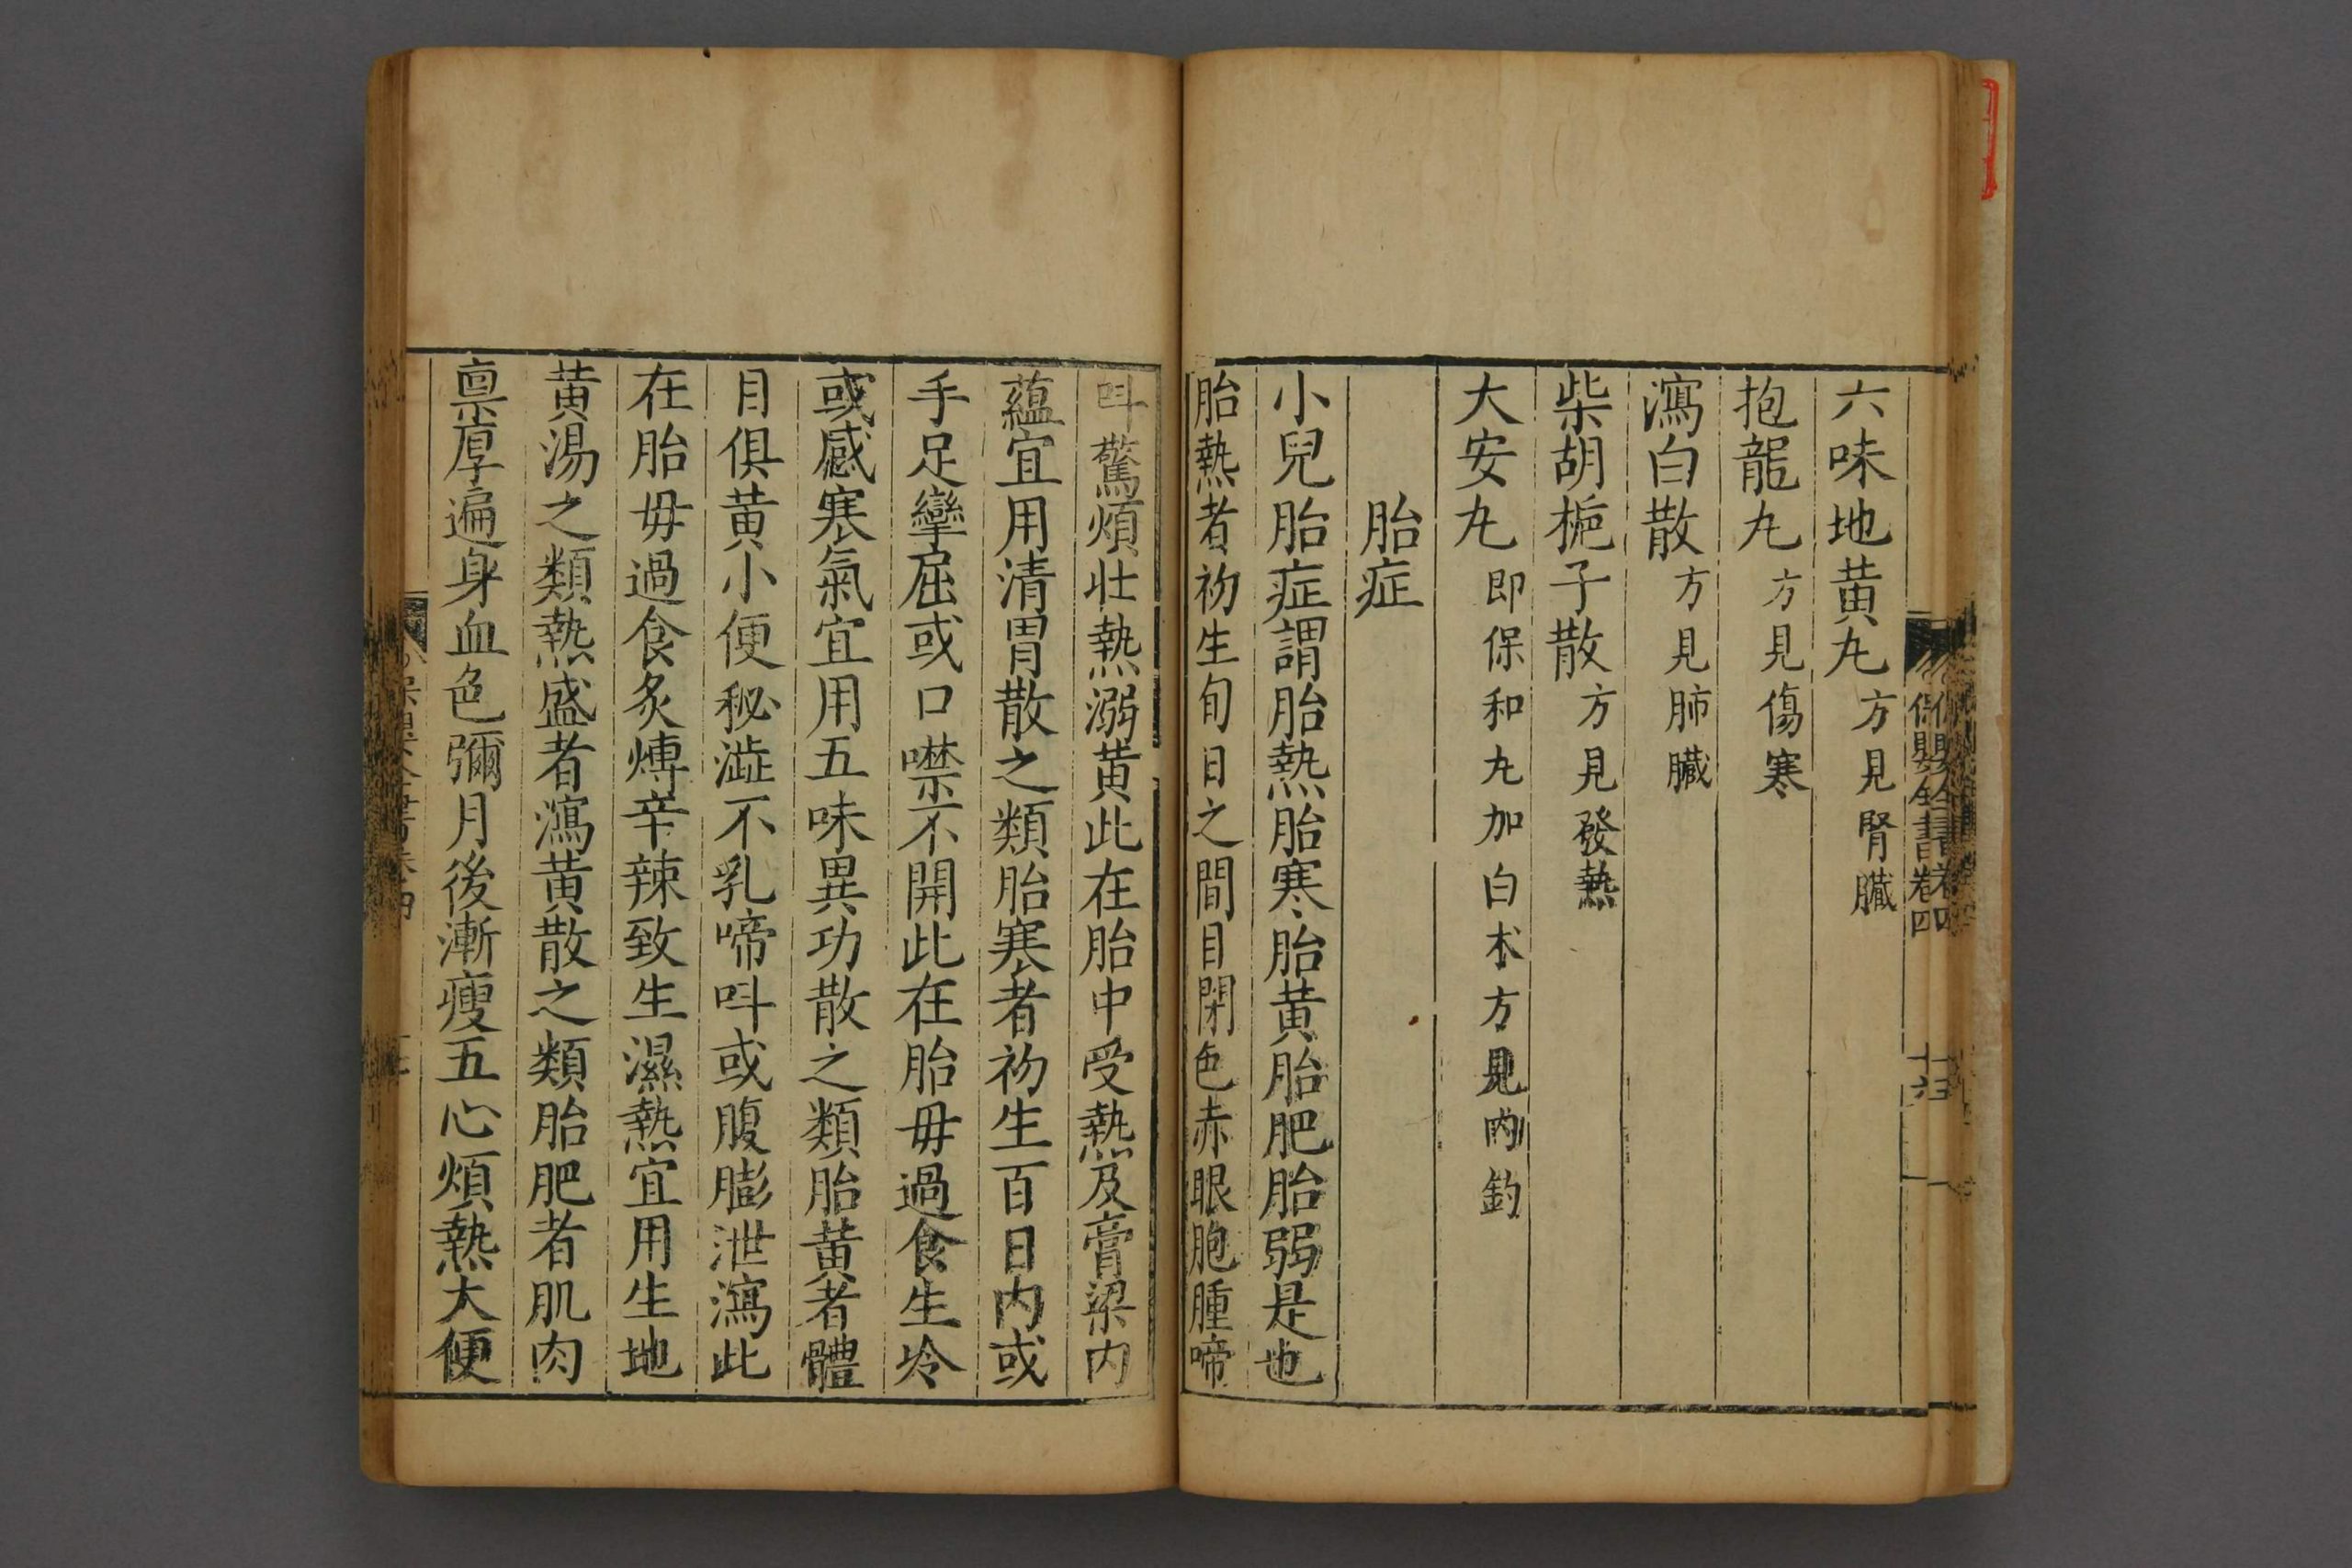 六味地黃丸方見腎臟
抱龍丸方見傷寒
瀉白散方見肺臟
柴胡梔子散方見發熱
大安丸即保和丸加白术方見內釣
胎症
小兒胎症謂胎熱胎寒胎黃胎肥胎弱是也
胎熱者初生旬日之間目閉色赤眼胞腫啼
呌驚煩壯熱溺黃此在胎中受熱及膏粱内
蘊宜用清胃散之類胎寒者初生百日内或
手足攣屈或口噤不開此在胎毋過食生冷
或感寒氣宜用五味異功散之類胎黃者體
目俱黃小便秘澁不乳啼呌或腹膨泄瀉此
在胎毋過食炙煿辛辣致生濕熱宜用生地
黃湯之類熱盛者瀉黃散之類胎肥者肌肉
禀厚遍身血色彌月後漸瘦五心煩熱大便
保嬰全書卷四